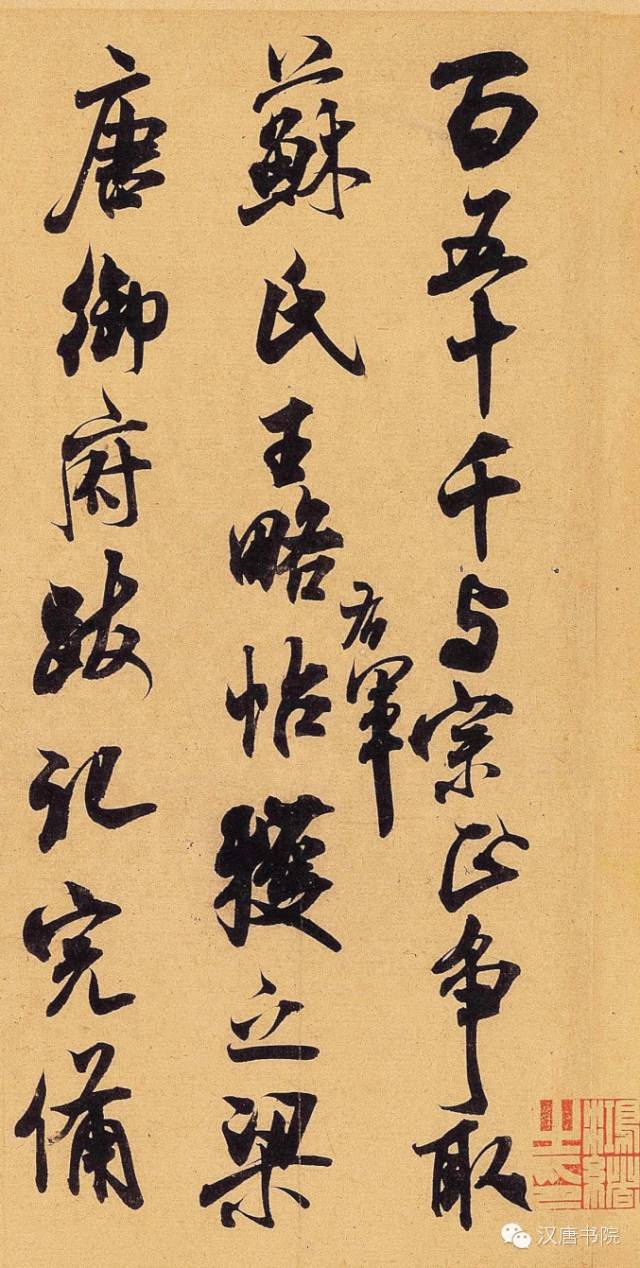 百五十千与宗正争取
蘇氏王略帖獲之梁
右軍
唐御府跋记完備
汉唐书院